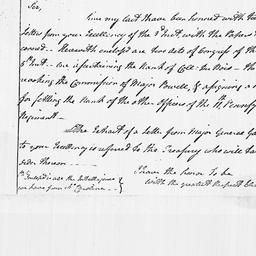 Sir,
Since my last I have been honored with the
Letters from your Excellency of the 3d Inst. with the Papers
Herewith enclosed are two Acts of Congress of the
5th Inst. one ascertaining the Rank of
vacating the Commission of Major Powell, & assigning a
for settling the Rank of the other officers of the 11 Pennsy
Regiment.
The Extract of a Letter from Major General
to your Excellency is referred to the Treasury who will take
order thereon
I have the honor to be
with the greatest Respect
Enclosed is also the Intelligence
we have from So. Carolina